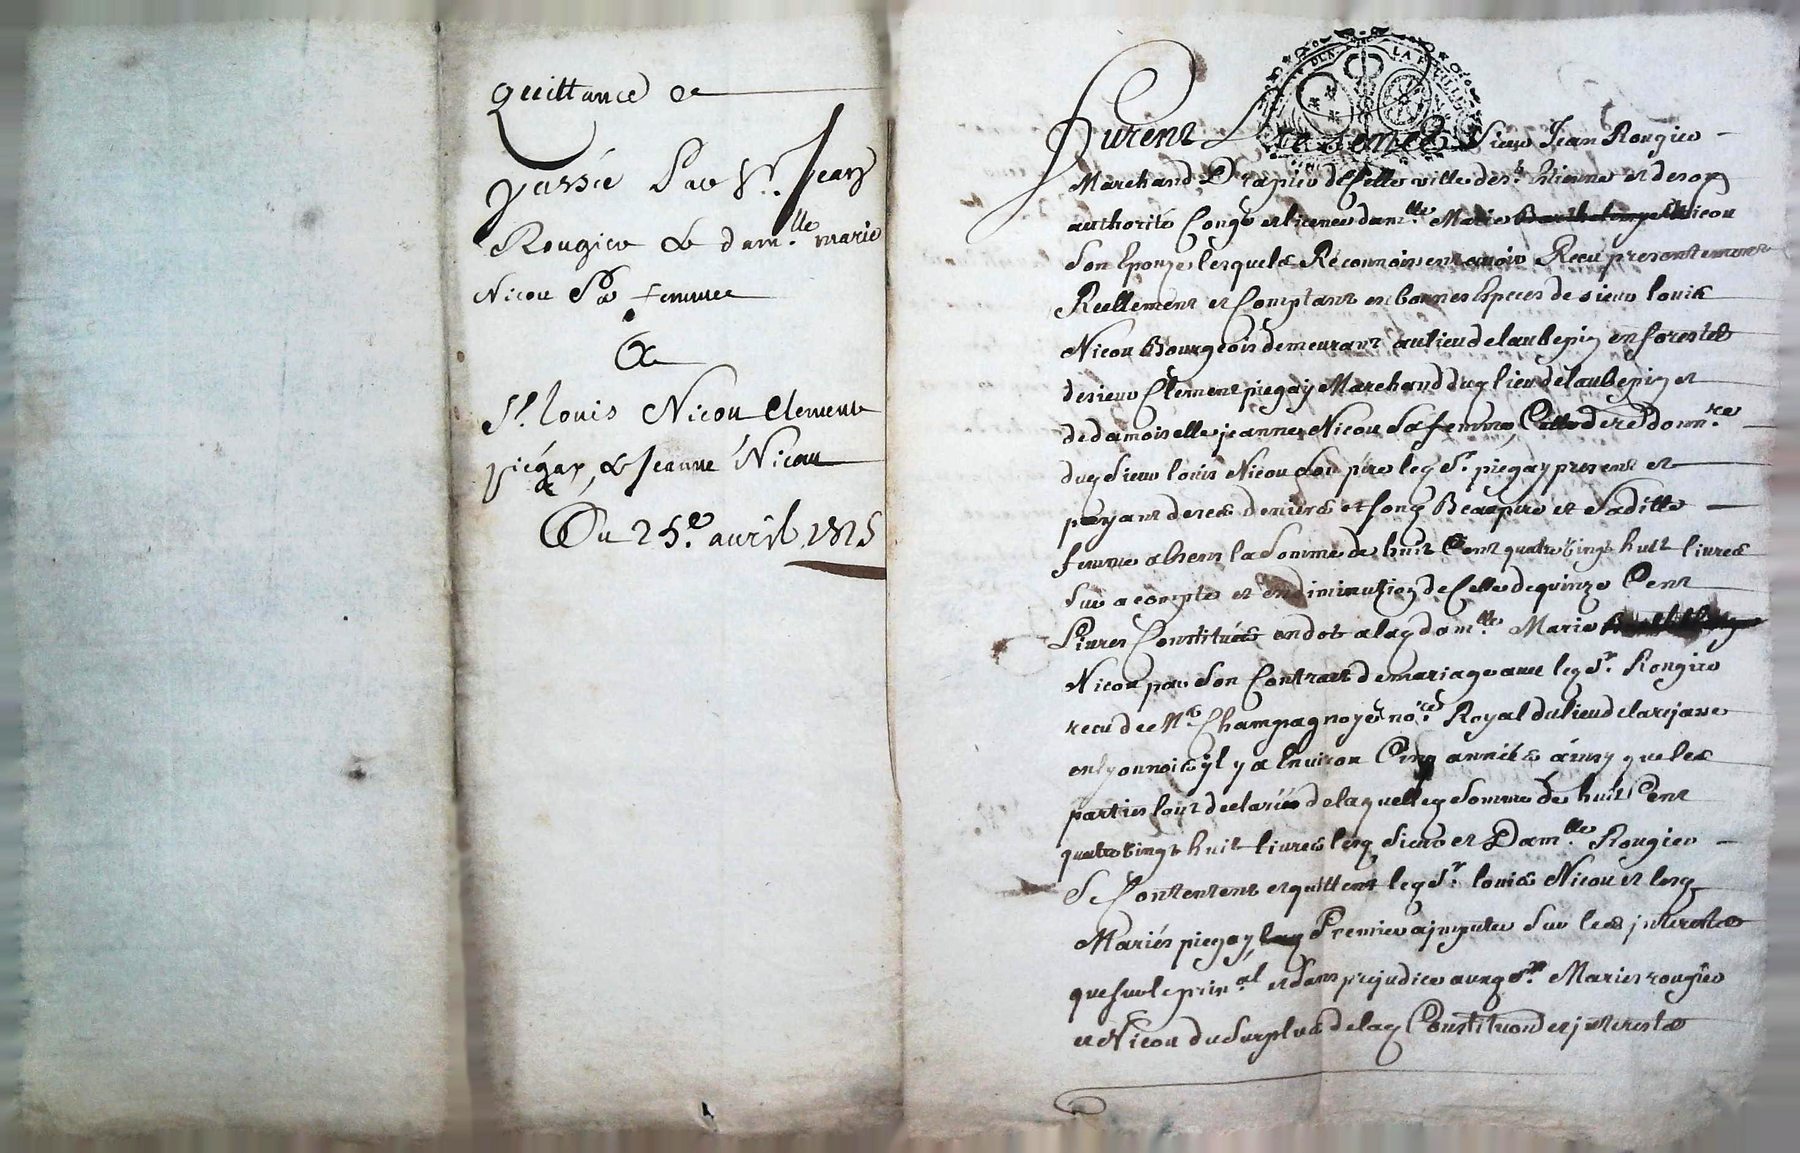 Quittance &
passée Par Sr. Jean
Rougier & dam.lle marie
Nicou Sa femme
A
Sr. louis Nicou Clement
piégay, & Jeanne Nicou
Du 25e. avril
furent Presentes Sieur Jean Rougier
Marchand Drapier de Cette ville de St. Etienne et de son
authorité Congé et licence dam.lle Marie Nicou
Son Epouze lesquels Reconnoissent avoir Recu presentement
Reellement et Comptant en bonnes Especes de sieur louis
Nicou Bourgeois demeurant au lieu de laubepin en forest et
de sieur Clement piegay Marchand dud lieu de laubepin et
de damoiselle jeanne Nicou Sa femme
dud Sieur louis Nicou Son pére led Sr. piegay present et
payant de ses deniers et Beaupere et Saditte
femme absens la Somme de huit Cent quatre vingt huit livres
Sur a compte et en diminution de Celle de quinze Cent
Livres Constituées en dot a lad dam.lle Marie
Nicou par Son Contract de mariage avec led Sr. Rougier
recu de Me Champagnoye no.re Royal du lieu de larajasse
en lyonnois yl y a Environ Cinq années ainsy que les
parties lont declarés de laquelle Somme de huit Cent
quatre vingt huit livres lesd Sieur et Dam.lle Rougier
Se Contentent et quittent led Sr. louis Nicou et lesd
Mariés piegay Premier a imputer Sur les jnterests
que Sur le prin.al et Sans prejudice auxd Mariés rougier
et Nicou du Surplus de lad Constitution et jnterests